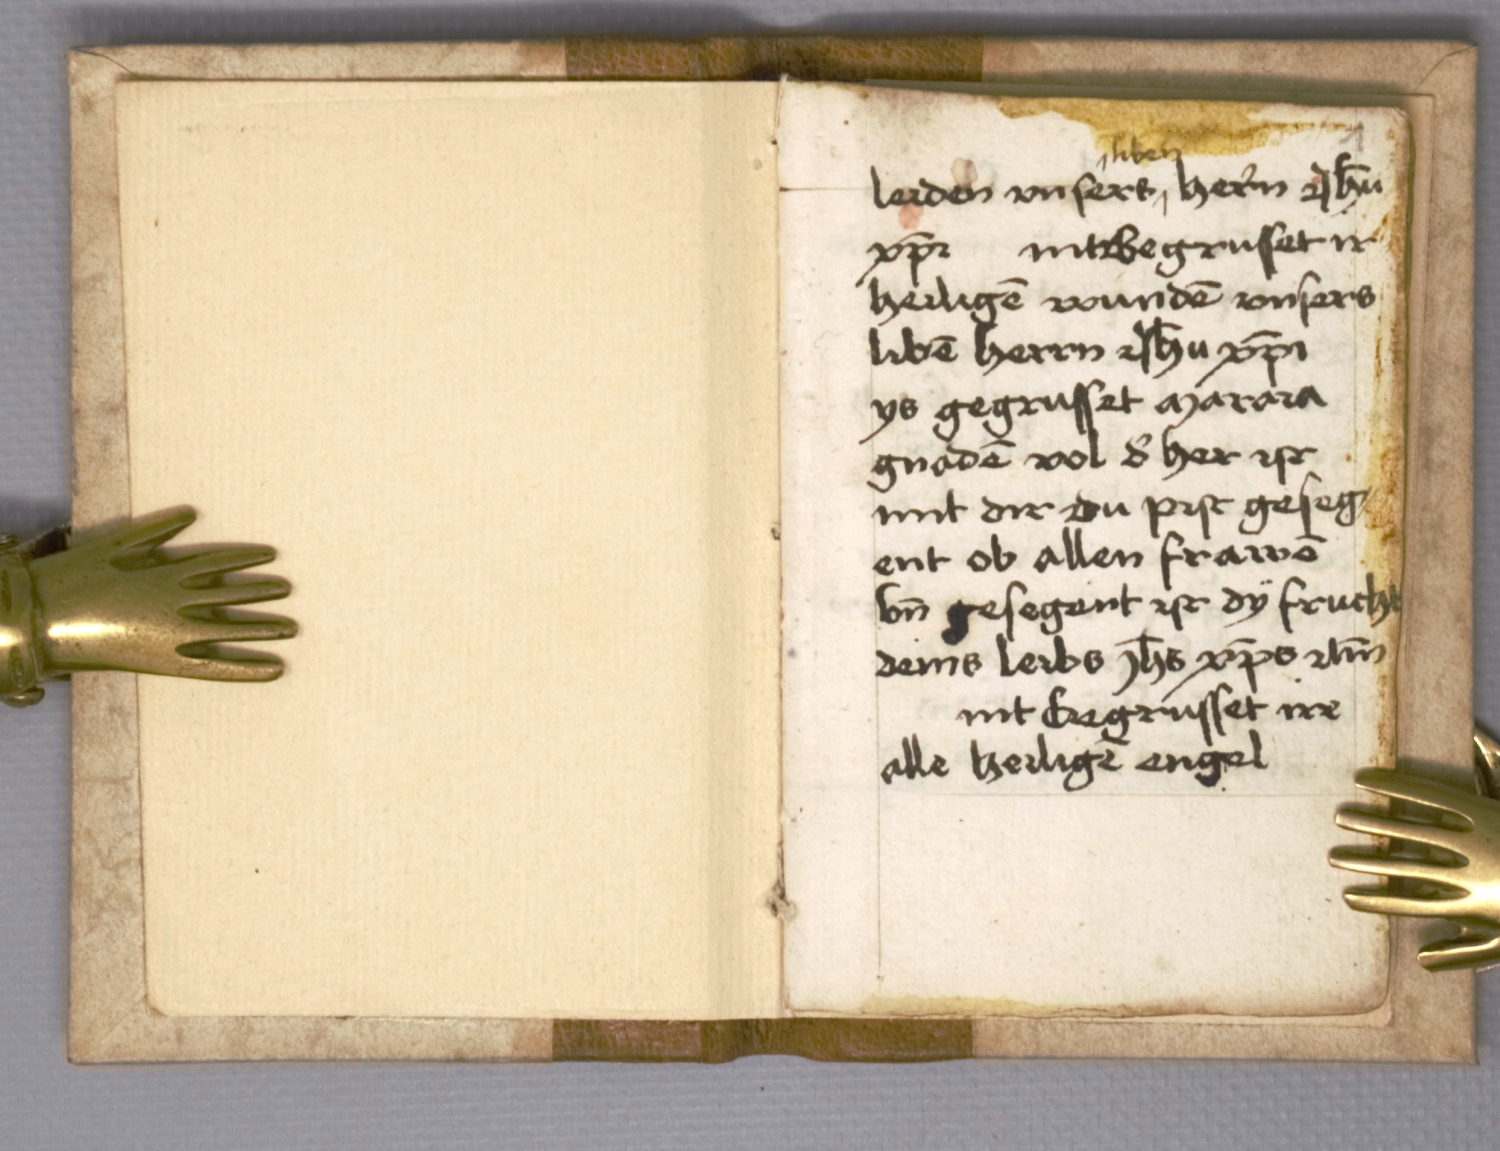 liben
leiden vnsers herrn Jhu
xpi nit begrusset ir
heiligē wundē vnsers
libē herrn Jhu xpi
ys gegrusset Maria
gnadē vol d' her ist
mit dir du pist geseg
ent ob allen frawē
vn̄ gesegent ist dÿ frucht
deins leibs Jhs xps
nit begrusset ire
alle heiligē engel